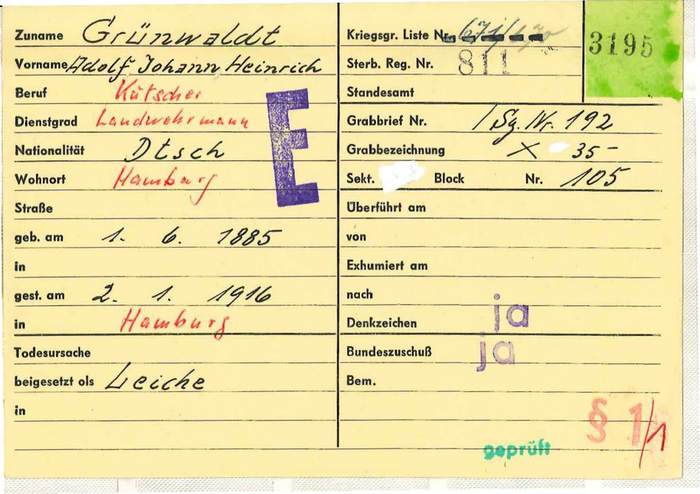 Zuname Grünwaldt
Vorname Adolf Johann Heinrich
Beruf Kutscher
Dienstgrad Landwehrmann
Nationalität Dtsch
Wohnort Hamburg
Straße
geb. am 1. 6. 1885
in
gest. am 2. 1. 1916
in Hamburg
Todesursache
beigesetzt als Leiche
in
E
Kriegsgr. Liste Nr.
3195
Sterb. Reg. Nr. 811
Standesamt
Grabbrief Nr. / Sg. Nr. 192
Grabbezeichnung X 35-
Sekt. Block Nr. 105
Überführt am
von
Exhumiert am
nach
Denkzeichen ja
Bundeszuschuß ja
Bem.
§ 1/1
geprüft